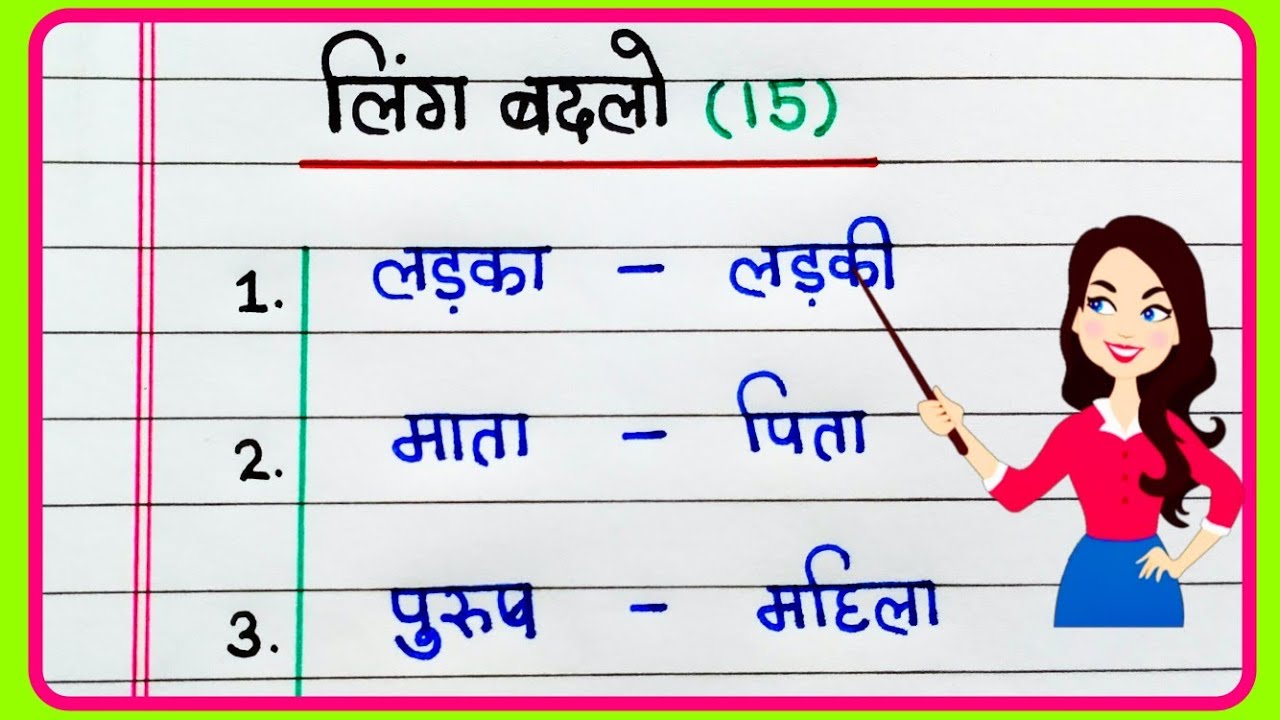 लिंग बदलो (15)
1. लड़का - लड़की
2. माता - पिता
3. पुरुष - महिला